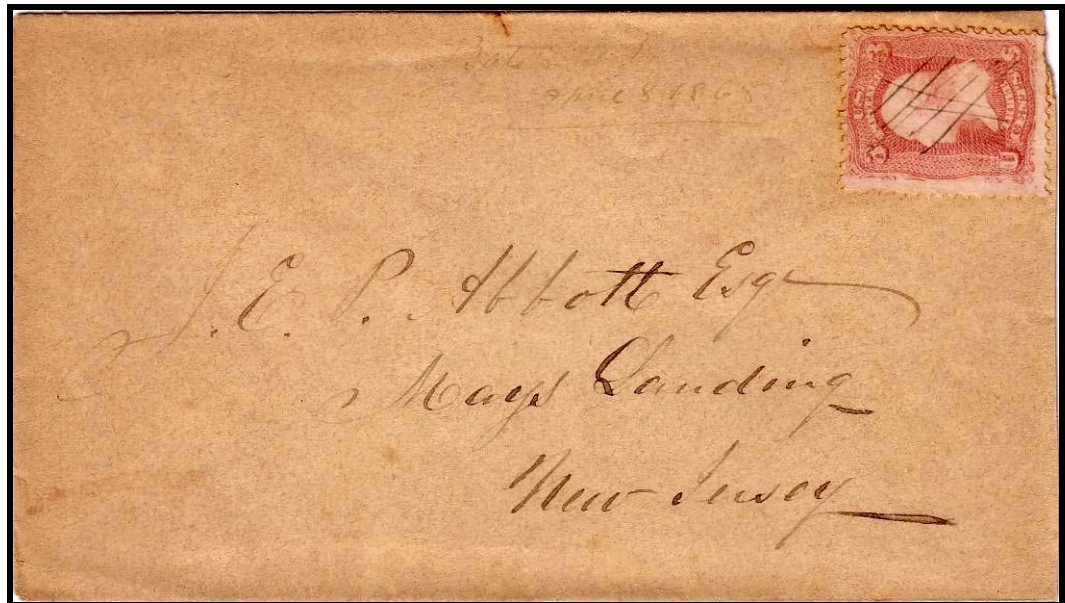 April 8 1865
J. E. P. Abbott Esq
Mays Landing
New Jersey